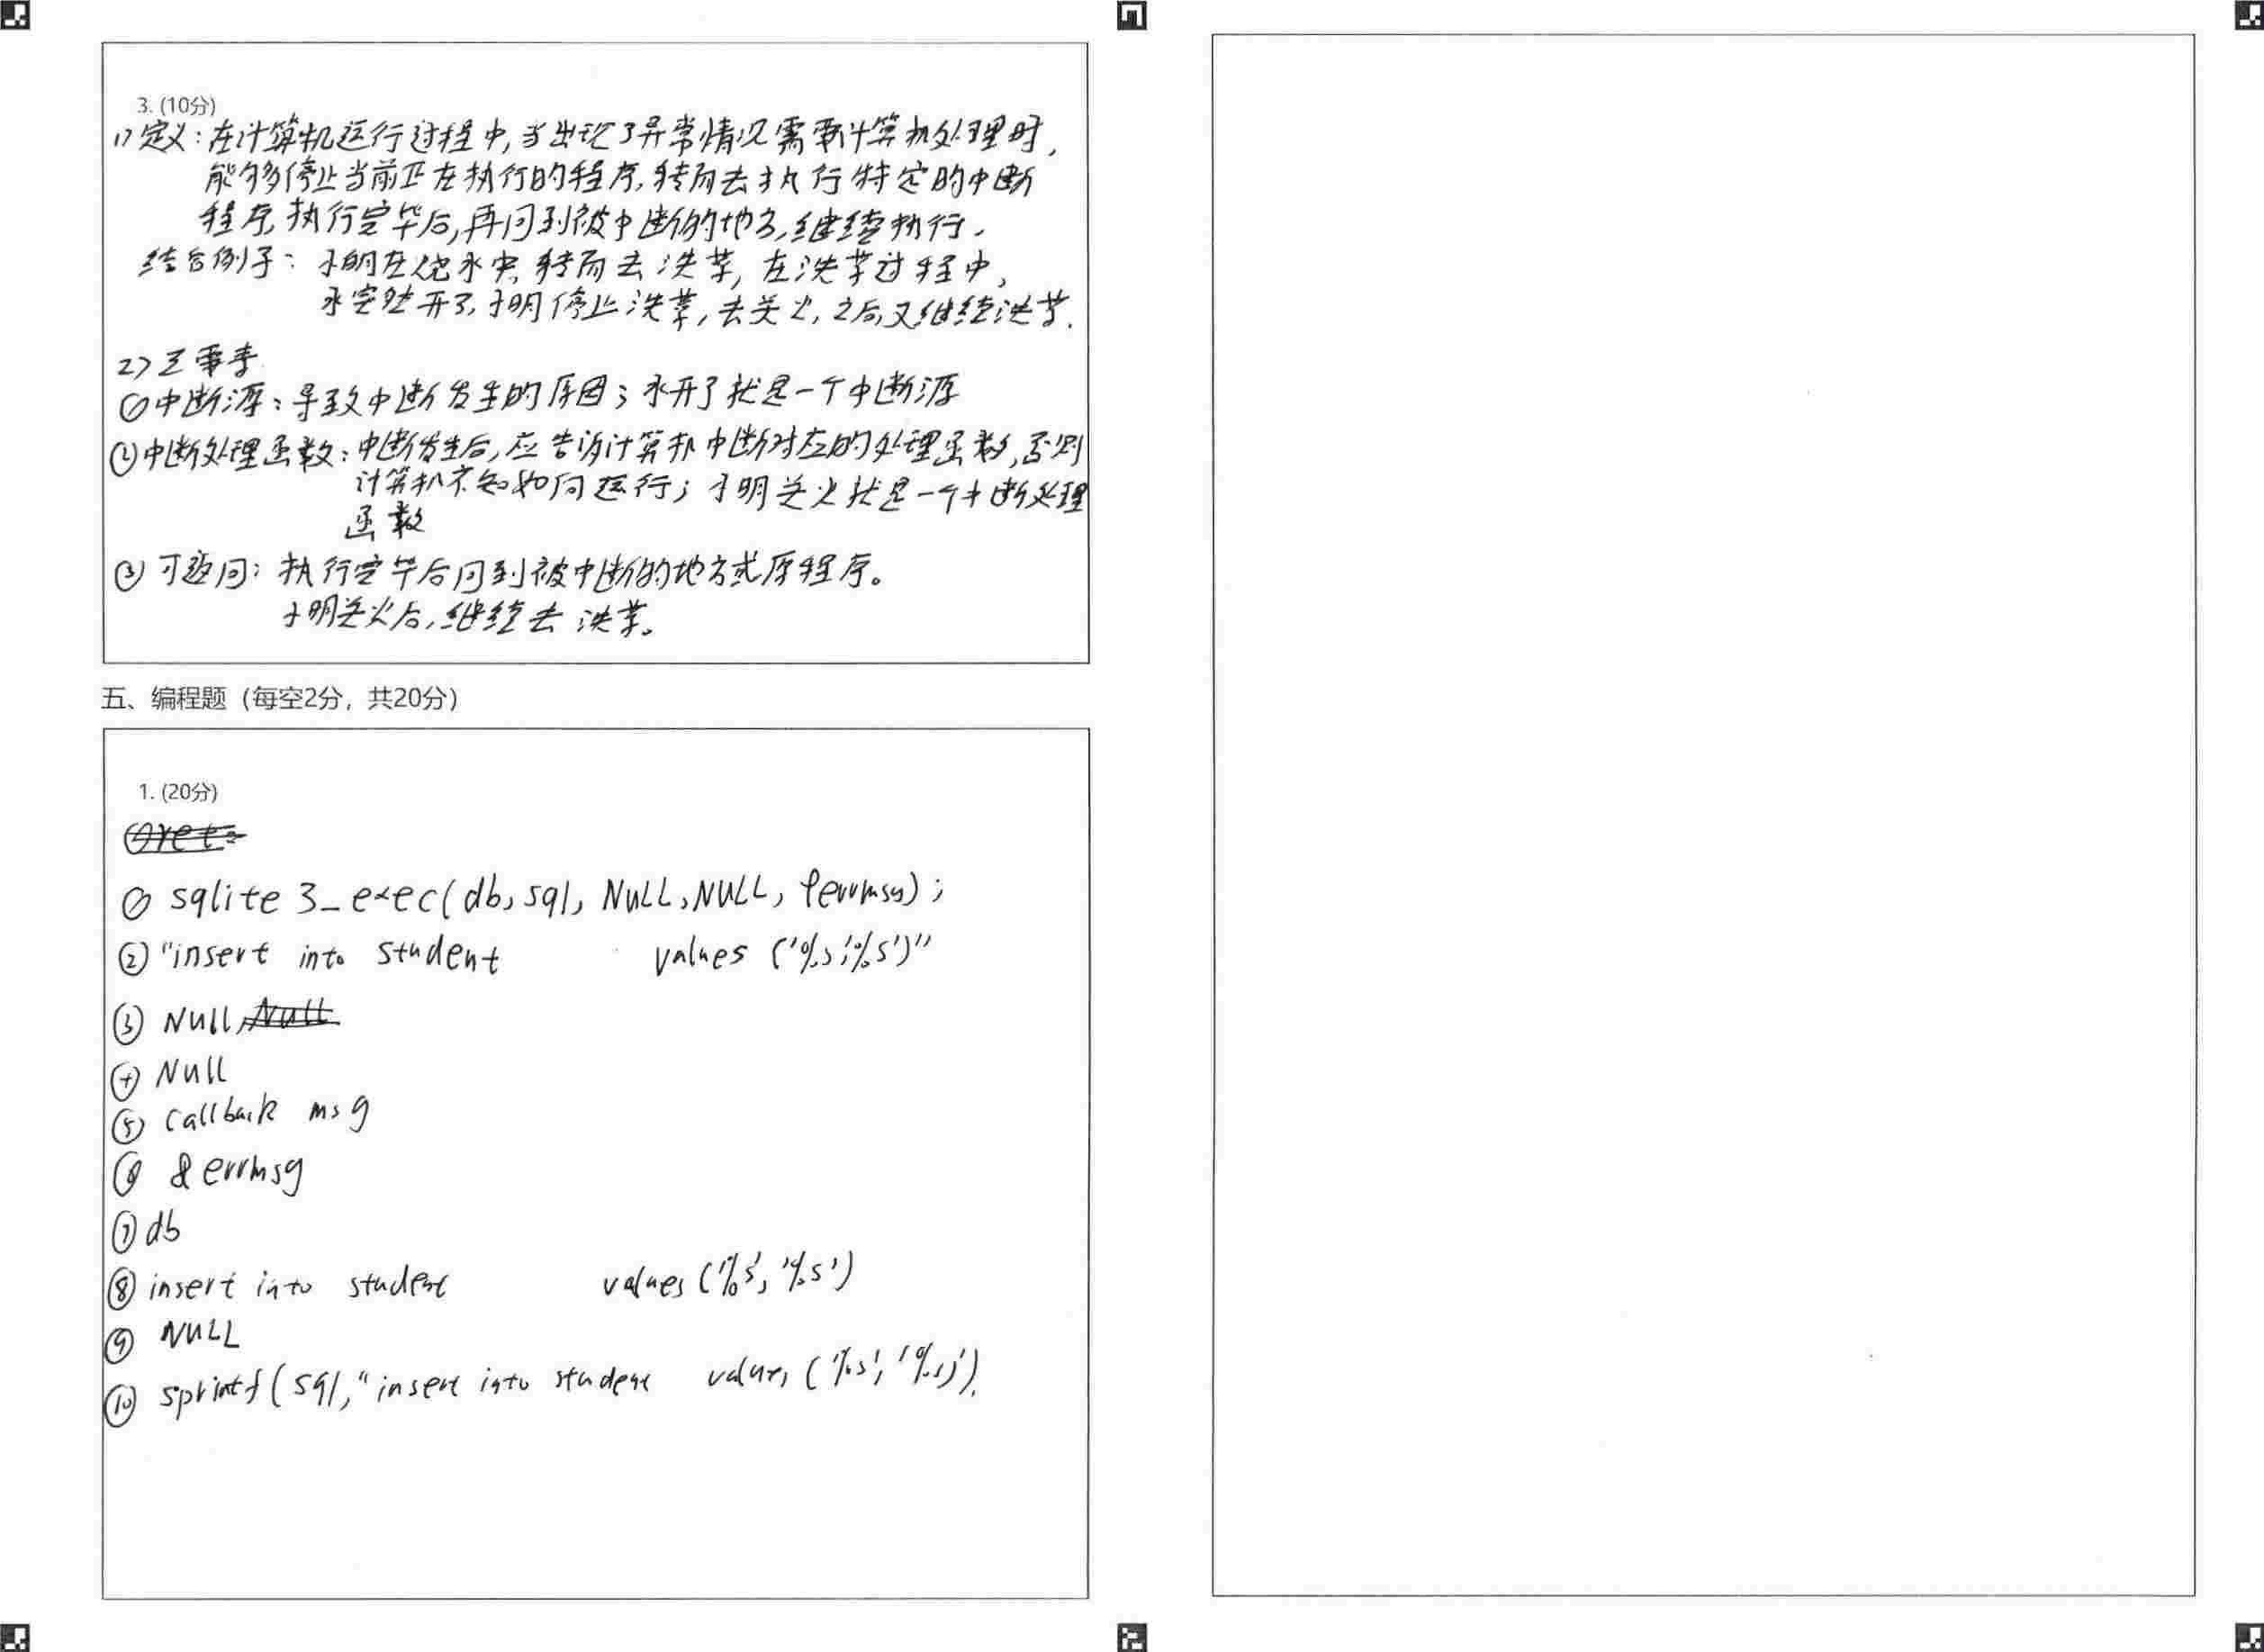 3. (10分)
1) 定义：在计算机运行过程中，当出现了异常情况需要计算机处理时，
能够停止当前正在执行的程序，转而去执行特定的中断
程序，执行完毕后，再回到被中断的地方，继续执行．
结合例子：小明在烧水中，转而去洗菜，在洗菜过程中，
水突然开了，小明停止洗菜，去关火，之后又继续洗菜．
2) 三要素
①中断源：导致中断发生的原因；水开了就是一个中断源
②中断处理函数：中断发生后，应告诉计算机中断对应的处理函数，否则
计算机不知如何运行；小明关火就是一个中断处理
函数
③可返回：执行完毕后回到被中断的地方或原程序。
小明关火后，继续去洗菜。
五、编程题（每空2分，共20分）
1. (20分)
①ret=
① sqlite3_exec(db, sql, NULL, NULL, &errmsg);
② "insert into student values ('%s','%s')"
③ Null, Null
④ Null
⑤ callback msg
⑥ &errmsg
⑦ db
⑧ insert into student values ('%s', '%s')
⑨ NULL
⑩ sprintf(sql, "insert into student values ('%s', '%s)').